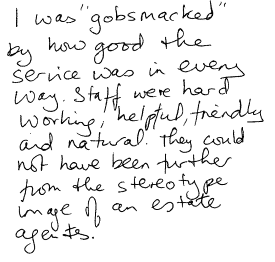 I was "gobsmacked"
by how good the
service was in every
way. Staff were hard
working, helpful, friendly
and natural. They could
not have been further
from the stereotype
image of an estate
agents.